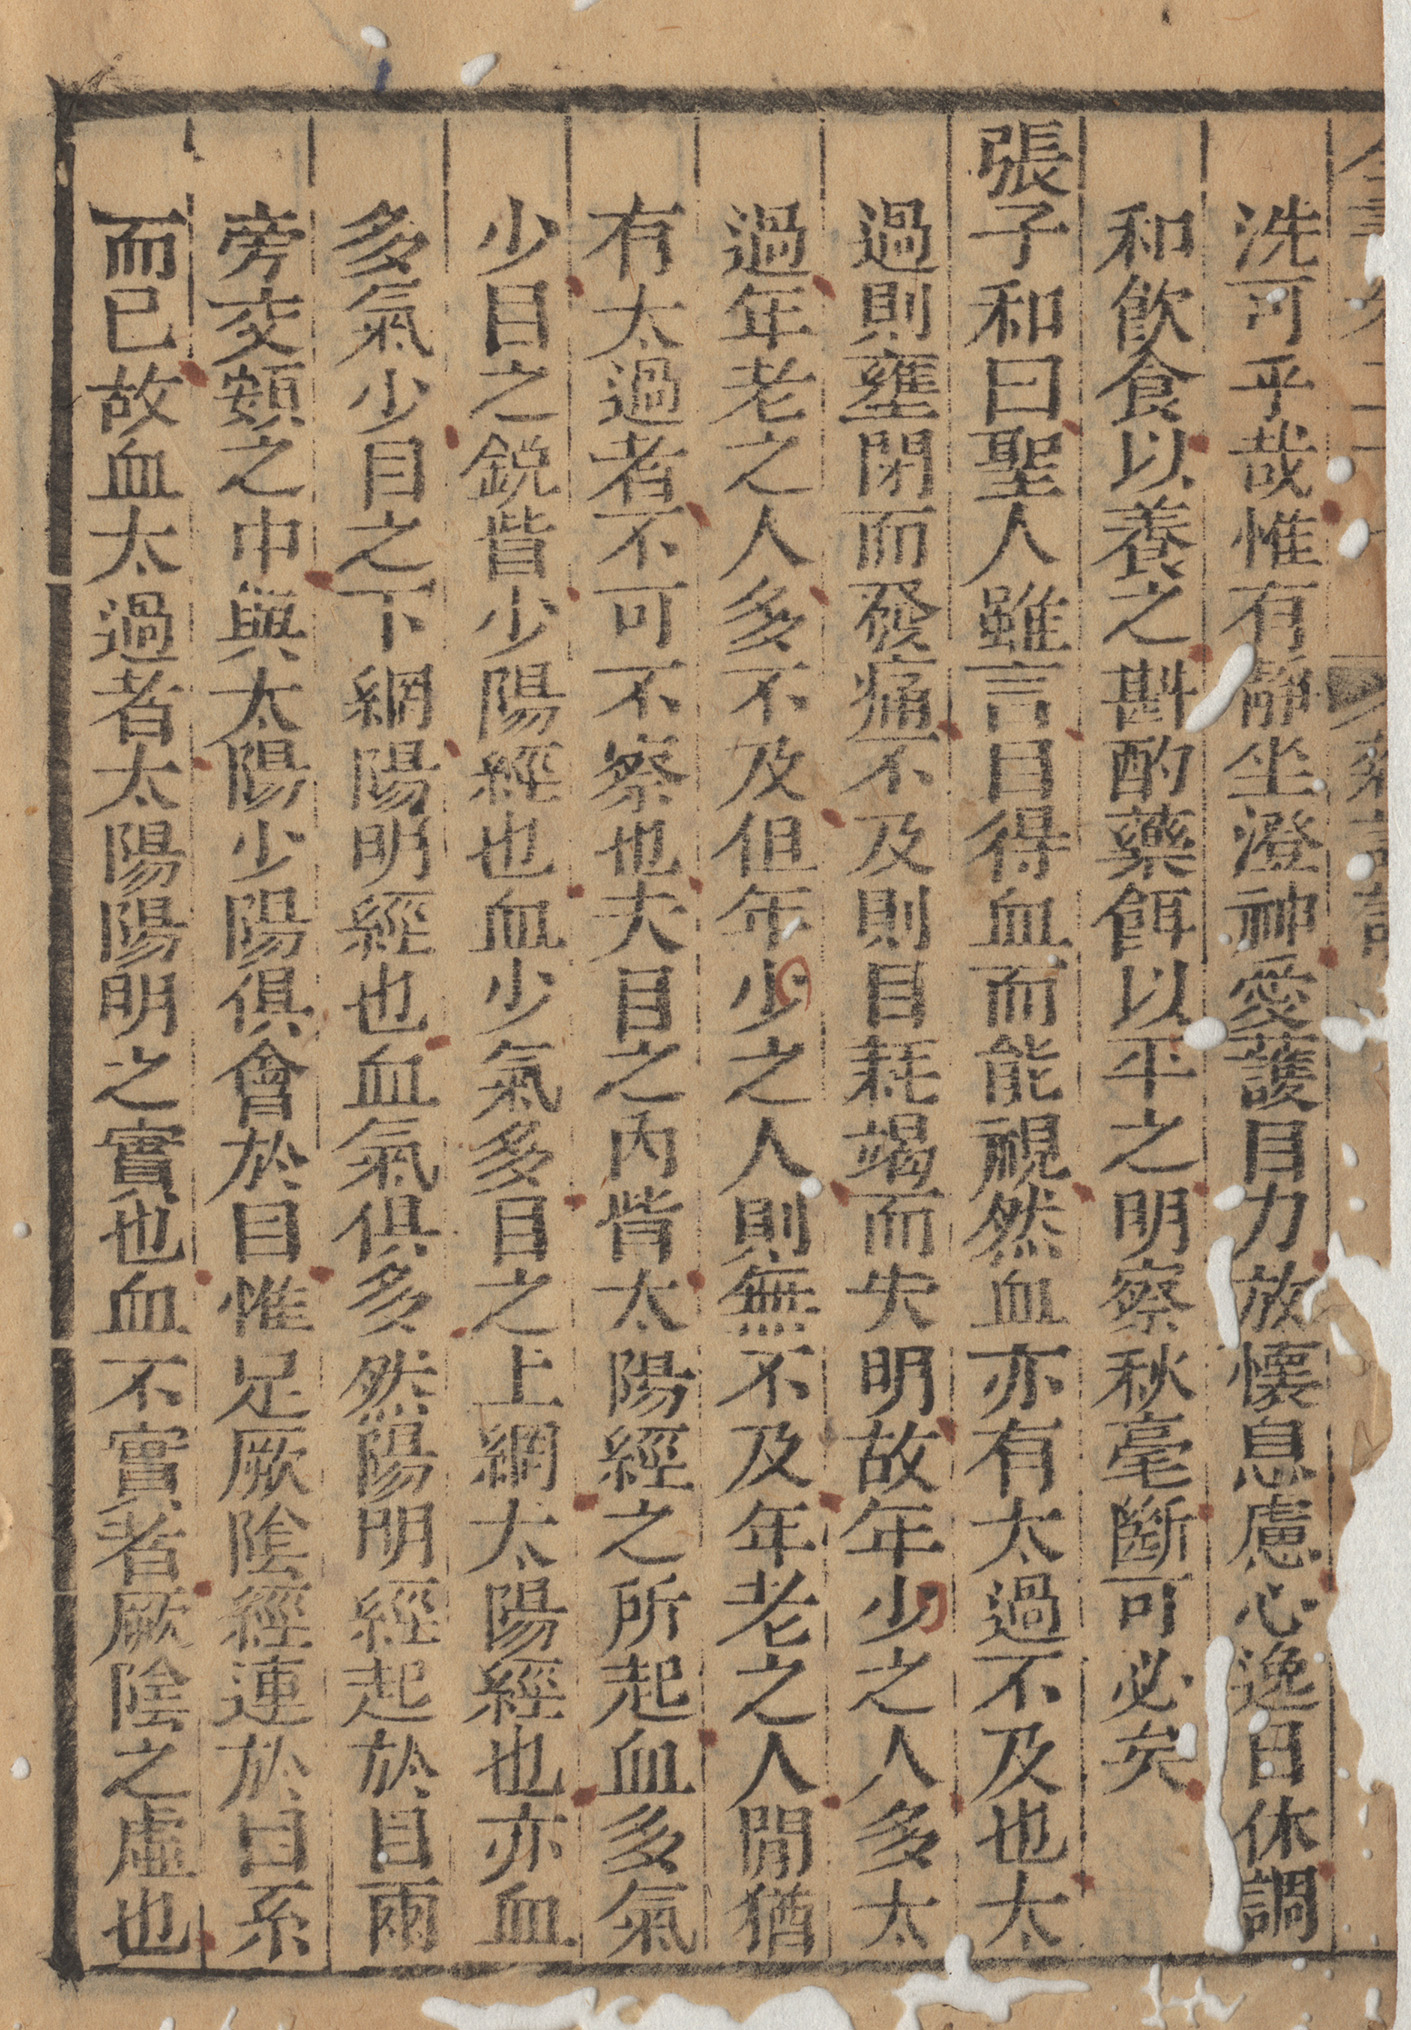 洗可乎哉惟有靜坐澄神愛護目力放懷息慮心逸日休調
和飲食以養之斟酌藥餌以平之明察秋毫斷可必矣
張子和曰聖人雖言目得血而能視然血亦有太過不及也太
過則壅閉而發痛不及則目耗竭而失明故年少之人多太
過年老之人多不及但年少之人則無不及年老之人閒猶
有太過者不可不察也夫目之內眥太陽經之所起血多氣
少目之銳眥少陽經也血少氣多目之上網太陽經也亦血
多氣少目之下網陽明經也血氣俱多然陽明經起於目兩
旁交頞之中與太陽少陽俱會於目惟足厥陰經連於目系
而已故血太過者太陽陽明之實也血不實者厥陰之虛也